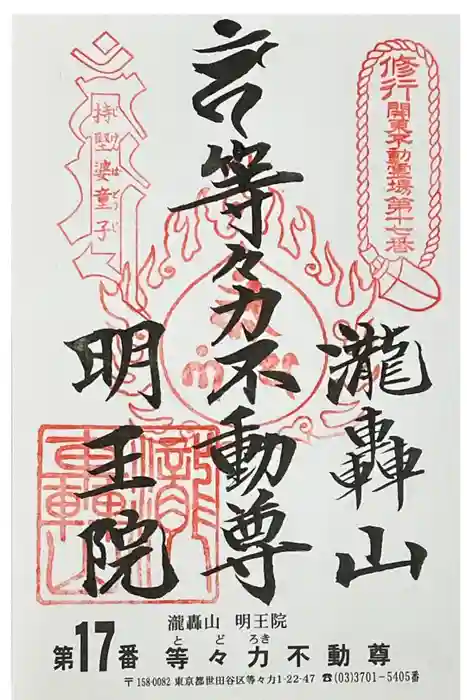 修行
関東不動霊場第十七番
持堅婆童子
じけんばどうじ
等々力不動尊
瀧轟山
明王院
瀧轟山
瀧轟山 明王院
とどろき
第17番 等々力不動尊
〒158-0082 東京都世田谷区等々力1-22-47 ☎(03)3701-5405番